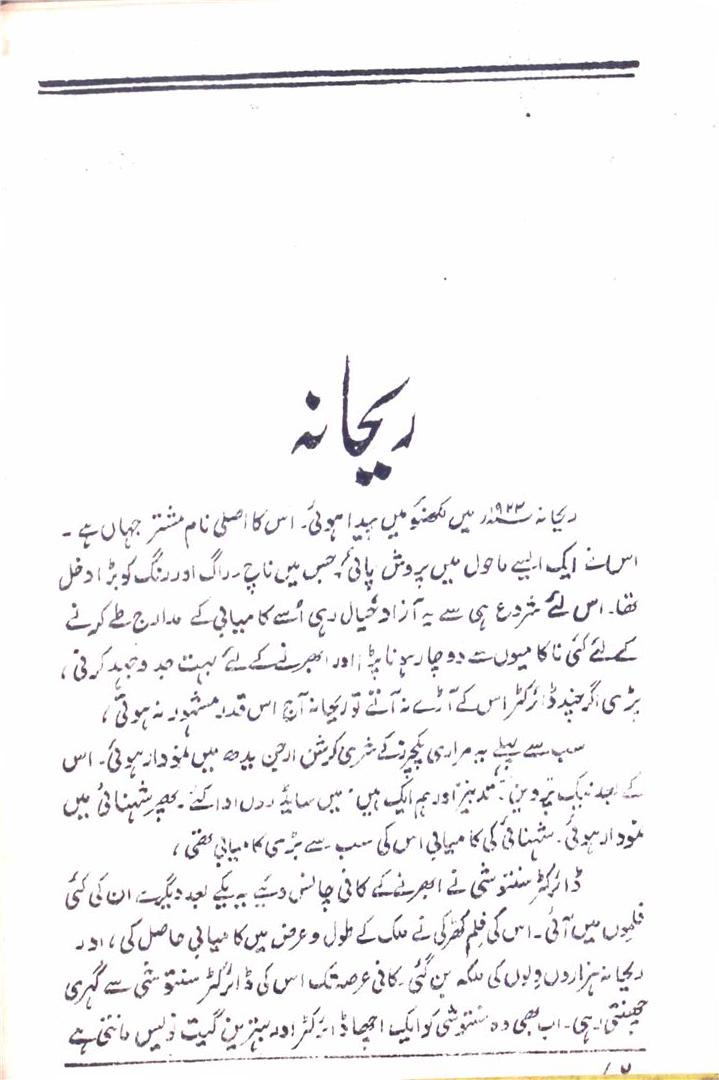 ریحانہ
ریحانہ ۱۹۲۳ء میں لکھنؤ میں پیدا ہوئی۔ اس کا اصلی نام مشتر جہاں ہے۔
اس نے ایک ایسے ماحول میں پروش پائی جس میں ناچ۔ راگ اور رنگ کو بڑا دخل
تھا۔ اس لئے شروع ہی سے یہ آزاد خیال رہی اُسے کامیابی کے مدارج طے کرنے
کے لئے کئی ناکامیوں سے دوچار ہونا پڑا اور ابھرنے کے لئے بہت جد وجہد کرنی ،
پڑی اگر چند ڈائرکٹر اس کے آڑے نہ آتے تو ریحانہ آج اس قدر مشہور نہ ہوتی ،
سب سے پہلے یہ مراری پکچرز کے شری کرشن ارجن یدھ میں نمودار ہوئی۔ اس
کے بعد نیک پروین، تدبیر اور ہم ایک ہیں میں سائیڈ رول ادا کئے۔ پھر شہنائی میں
نمودار ہوئی۔ شہنائی کی کامیابی اس کی سب سے بڑی کامیابی تھی ،
ڈائرکٹر سنتوشی نے ابھرنے کے کافی چانس دیئے یہ یکے بعد دیگرے ان کی کئی
فلموں میں آئی۔ اس کی فلم کھڑکی نے ملک کے طول و عرض میں کامیابی حاصل کی ، اور
ریحانہ ہزاروں دلوں کی ملکہ بن گئی۔ کافی عرصہ تک اس کی ڈائرکٹر سنتوشی سے گہری
چھنتی رہی۔ اب بھی وہ سنتوشی کو ایک اچھا ڈائرکٹر اور بہترین گیت نویس مانتی ہے